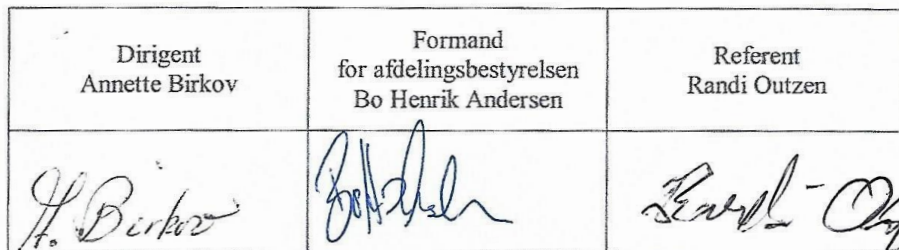 Dirigent
Annette Birkov
Formand
for afdelingsbestyrelsen
Bo Henrik Andersen
Referent
Randi Outzen
A. Birkov